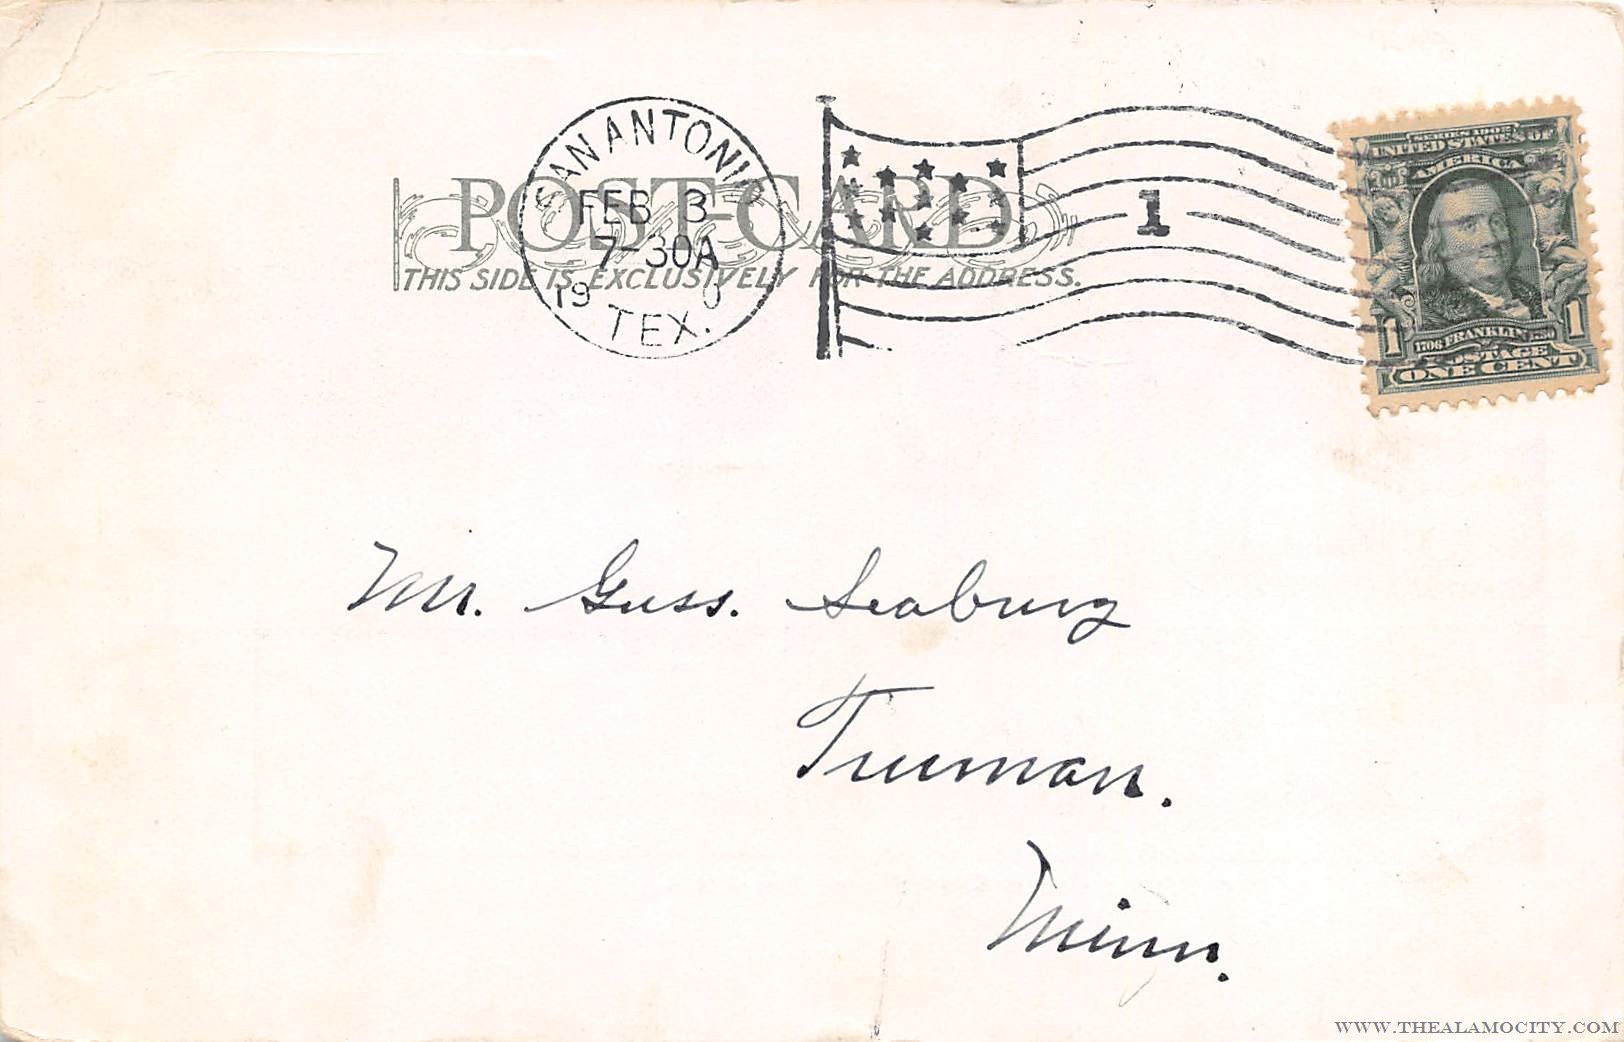 SAN ANTONIO
FEB 3
7-30A
19 0
TEX.
1
POST-CARD
THIS SIDE IS EXCLUSIVELY FOR THE ADDRESS.
SERIES 1902
UNITED STATES OF
AMERICA
1706 FRANKLIN 1790
1 1
POSTAGE
ONE CENT
Mr. Guss. Seaburg
Truman.
Minn.
WWW.THEALAMOCITY.COM